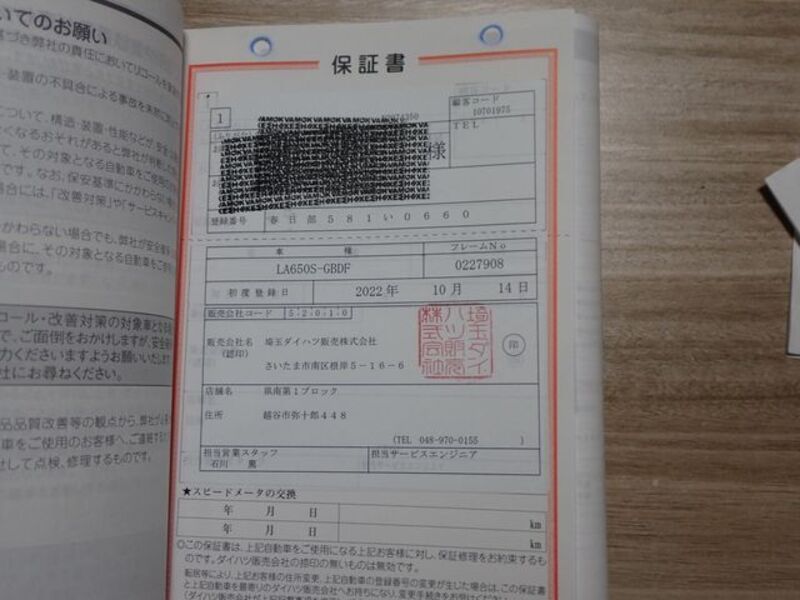 いてのお願い
づき弊社の責任においてリコールを
装置の不具合による事故を未然に
について、構造・装置・性能などが
くなるおそれがあると弊社が判断
て、その対象となる自動車をご使用の
です。なお、保安基準にかかわらない
場合には、「改善対策」や「サービスキャン
かかわらない場合でも、弊社が安全
場合に、その対象となる自動車をご
ものです。
コール・改善対策の対象車となる
で、ご面倒をおかけしますが、安全
力くださいますようお願いいたします
社にお尋ねください。
品品質改善等の観点から、弊社が
車をご使用のお客様へ、ご連絡する
せして点検、修理するものです。
保証書
1
顧客コード
10701975
TEL
様
登録番号 春日部581い0660
車種 フレームNo
LA650S-GBDF 0227908
初度登録日 2022年 10月 14日
販売会社コード 52010
販売会社名 埼玉ダイハツ販売株式会社
(認印)
さいたま市南区根岸5-16-6
印
埼玉ダイハツ販売株式会社
店舗名 県南第1ブロック
住所 越谷市弥十郎448
(TEL 048-970-0155 )
担当営業スタッフ 担当サービスエンジニア
石川 薫
★スピードメータの交換
年 月 日 km
年 月 日 km
◎この保証書は、上記自動車をご使用になる上記お客様に対し、保証修理をお約束するも
のです。ダイハツ販売会社の捺印の無いものは無効です。
転居等により、上記お客様の住所変更、上記自動車の登録番号の変更が生じた場合は、この保証書
と上記自動車を最寄りのダイハツ販売会社へお持ちになり、変更手続きをお受けください。